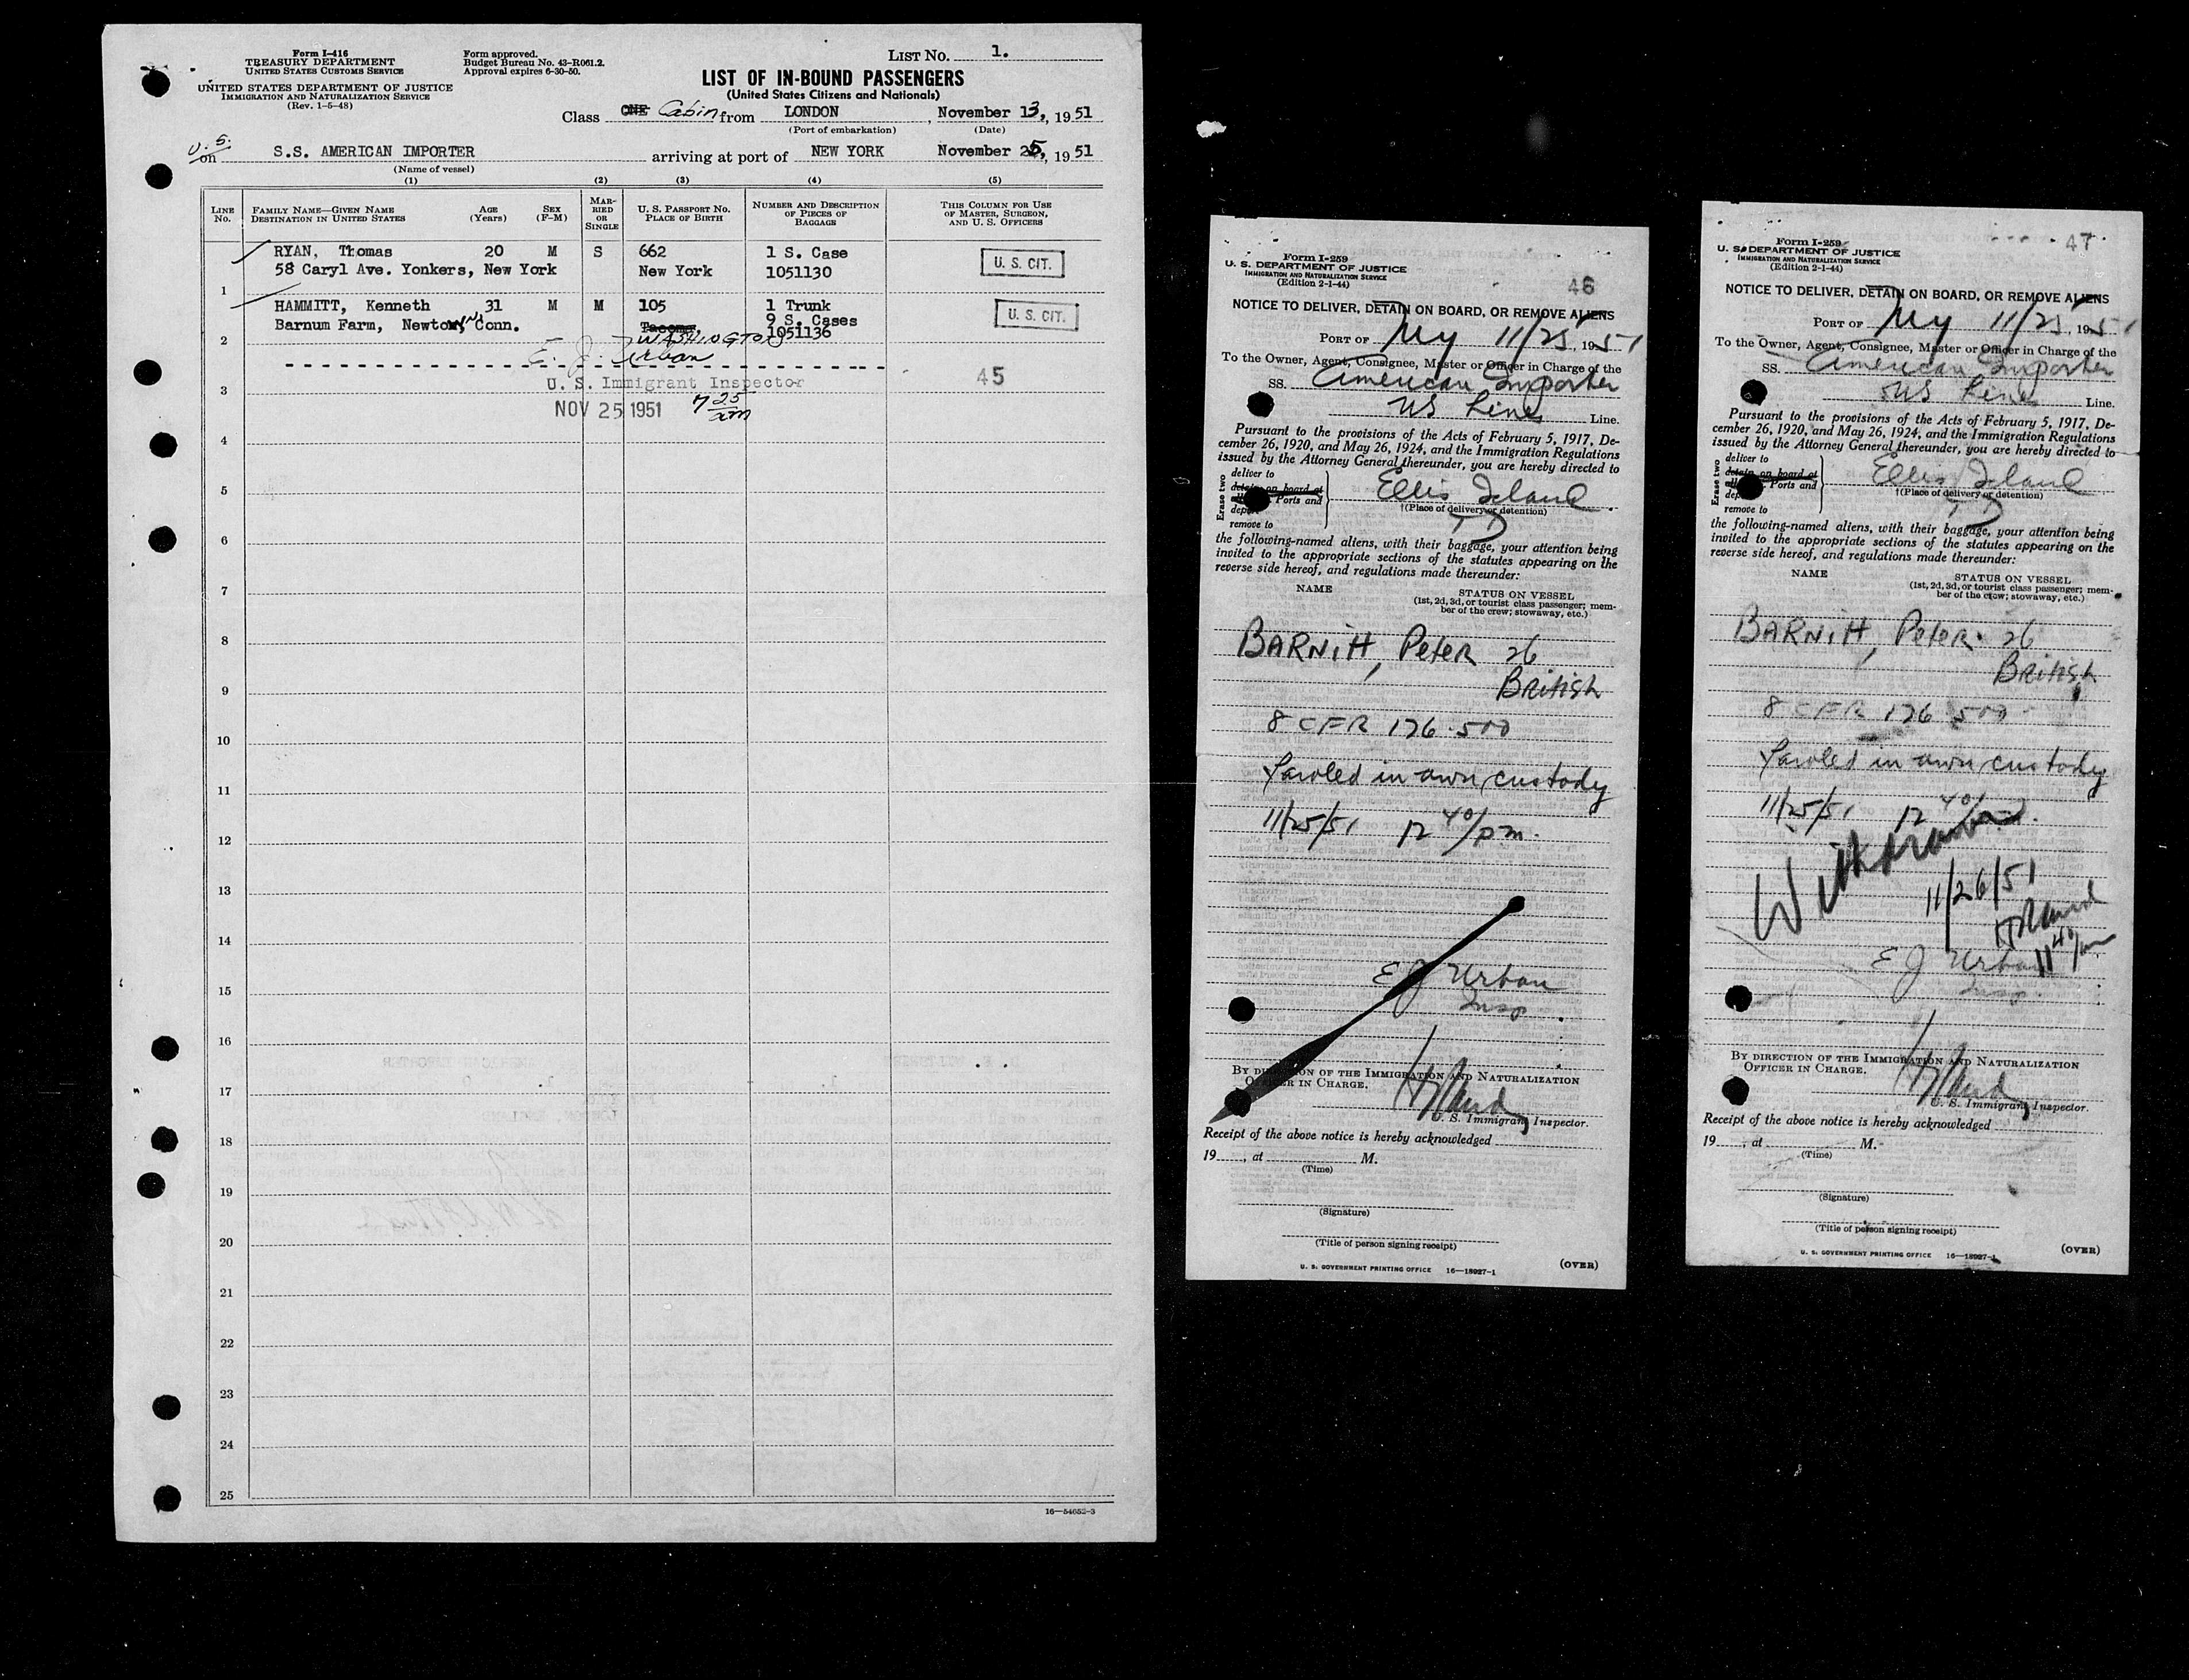 Form I-416
TREASURY DEPARTMENT
UNITED STATES CUSTOMS SERVICE
UNITED STATES DEPARTMENT OF JUSTICE
IMMIGRATION AND NATURALIZATION SERVICE
(Rev. 1-5-48)
Form approved.
Budget Bureau No. 43-R061.2.
Approval expires 6-30-50.
LIST NO. 1.
LIST OF IN-BOUND PASSENGERS
(United States Citizens and Nationals)
Class ONE Cabin from LONDON, November 13, 1951
(Port of embarkation) (Date)
U.S.
on S.S. AMERICAN IMPORTER arriving at port of NEW YORK November 25, 1951
(Name of vessel)
(1) (2) (3) (4) (5)
LINE NO. FAMILY NAME—GIVEN NAME DESTINATION IN UNITED STATES AGE (Years) SEX (F-M) MARRIED OR SINGLE U. S. PASSPORT NO. PLACE OF BIRTH NUMBER AND DESCRIPTION OF PIECES OF BAGGAGE THIS COLUMN FOR USE OF MASTER, SURGEON, AND U. S. OFFICERS
RYAN, Thomas 20 M S 662 1 S. Case U. S. CIT.
58 Caryl Ave. Yonkers, New York New York 1051130
1
HAMMITT, Kenneth 31 M M 105 1 Trunk U. S. CIT.
9 S. Cases
Barnum Farm, Newtown Conn. Tacoma, 1051136
2 WASHINGTON
E. J. Urban
3 U. S. Immigrant Inspector 45
NOV 25 1951 7 25 am
4
5
6
7
8
9
10
11
12
13
14
15
16
17
18
19
20
21
22
23
24
25
16—54652-3
Form I-259
U. S. DEPARTMENT OF JUSTICE
IMMIGRATION AND NATURALIZATION SERVICE
(Edition 2-1-44)
46
NOTICE TO DELIVER, DETAIN ON BOARD, OR REMOVE ALIENS
PORT OF NY 11/25, 1951
To the Owner, Agent, Consignee, Master or Officer in Charge of the
SS. American Importer
US Lines Line.
Pursuant to the provisions of the Acts of February 5, 1917, De-
cember 26, 1920, and May 26, 1924, and the Immigration Regulations
issued by the Attorney General thereunder, you are hereby directed to
Erase two
deliver to
detain on board at
Ports and
remove to
Ellis Island
†(Place of delivery or detention)
the following-named aliens, with their baggage, your attention being
invited to the appropriate sections of the statutes appearing on the
reverse side hereof, and regulations made thereunder:
NAME STATUS ON VESSEL
(1st, 2d, 3d, or tourist class passenger; mem-
ber of the crew; stowaway, etc.)
BARNitt, Peter 26
British
8 CFR 176.500
Paroled in own custody
11/25/51 12 40/pm.
E J Urban
Insp.
BY DIRECTION OF THE IMMIGRATION AND NATURALIZATION
OFFICER IN CHARGE.
U. S. Immigrant Inspector.
Receipt of the above notice is hereby acknowledged
19, at M.
(Time)
(Signature)
(Title of person signing receipt)
U. S. GOVERNMENT PRINTING OFFICE 16—18927-1
(OVER)
47
Form I-259
U. S. DEPARTMENT OF JUSTICE
IMMIGRATION AND NATURALIZATION SERVICE
(Edition 2-1-44)
NOTICE TO DELIVER, DETAIN ON BOARD, OR REMOVE ALIENS
PORT OF NY 11/25, 1951
To the Owner, Agent, Consignee, Master or Officer in Charge of the
SS. American Importer
US Lines Line.
Pursuant to the provisions of the Acts of February 5, 1917, De-
cember 26, 1920, and May 26, 1924, and the Immigration Regulations
issued by the Attorney General thereunder, you are hereby directed to
Erase two
deliver to
detain on board at
Ports and
remove to
Ellis Island
†(Place of delivery or detention)
the following-named aliens, with their baggage, your attention being
invited to the appropriate sections of the statutes appearing on the
reverse side hereof, and regulations made thereunder:
NAME STATUS ON VESSEL
(1st, 2d, 3d, or tourist class passenger; mem-
ber of the crew; stowaway, etc.)
BARNitt, Peter 26
British
8 CFR 176 500
Paroled in own custody
11/25/51 12 40/
Withdrawn
11/26/51
11 40/
E J Urban
Insp.
BY DIRECTION OF THE IMMIGRATION AND NATURALIZATION
OFFICER IN CHARGE.
U. S. Immigrant Inspector.
Receipt of the above notice is hereby acknowledged
19, at M.
(Time)
(Signature)
(Title of person signing receipt)
U. S. GOVERNMENT PRINTING OFFICE 16—18927-1
(OVER)